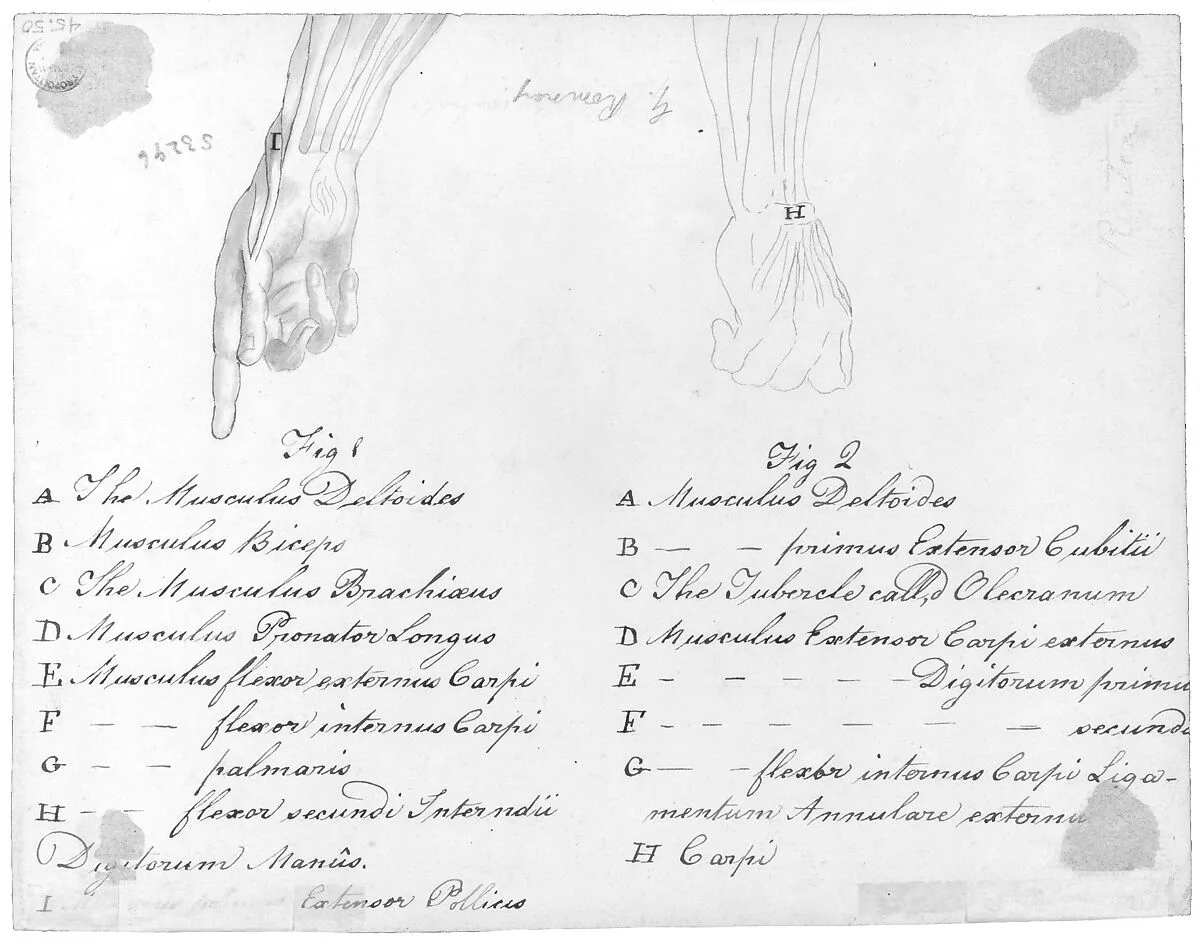 45.50
53296
G. Romney
I
H
Fig 1
A The Musculus Deltoides
B Musculus Biceps
C The Musculus Brachiæus
D Musculus Pronator Longus
E Musculus flexor externus Carpi
F — — flexor internus Carpi
G - - palmaris
H - - flexor secundi Interndii
Digitorum Manûs.
I Extensor Pollicis
Fig 2
A Musculus Deltoides
B — — primus Extensor Cubitii
C The Tubercle call,d Olecranum
D Musculus Extensor Carpi externus
E - - - - - Digitorum primu
F - - - — — — secundi
G — - flexor internus Carpi Liga-
mentum Annulare externu
H Carpi